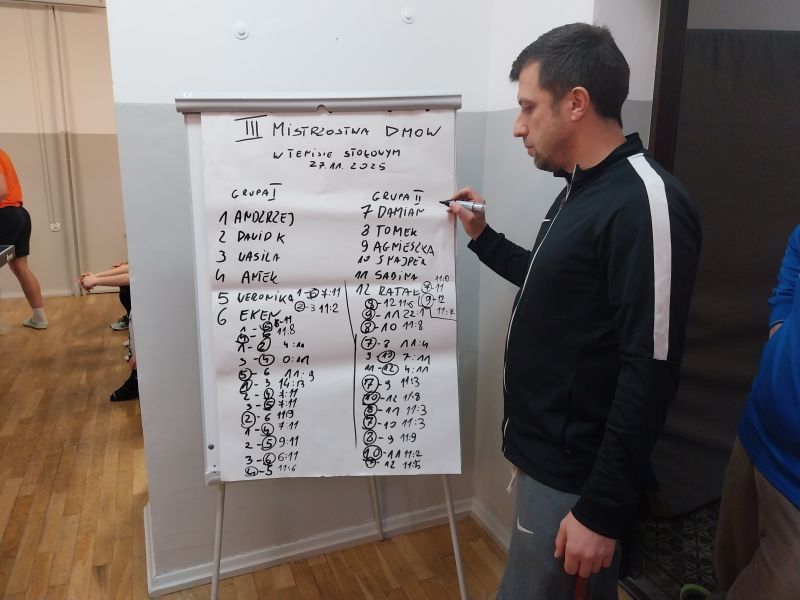 III MISTRZOSTWA DMOW
W TENISIE STOŁOWYM
27.11.2025
GRUPA I
1 ANDZRZEJ
2 DAVID K
3 VASILA
4 ANTEK
5 VERONIKA 1-6 7:11
6 EKEN 2-3 11:2
11:8
1-2 4:11
3-4 0:11
5-6 11:9
1-3 14:13
2-4 7:11
3-5 7:11
2-6 11:9
1-4 7:11
2-5 9:11
3-6 6:11
4-5 11:6
GRUPA II
7 DAMIAN
8 TOMEK
9 AGNIESZKA
10 SNAJPER
11 SABINA 11:0
12 RAFAŁ 7-11
8-12 11:6 9-12
9-11 22:1 11:7
8-10 11:8
7-8 11:4
9-10 7:11
11-12 4:11
7-9 11:3
10-12 11:8
8-11 11:3
7-10 11:3
8-9 11:9
10-11 11:2
7-12 11:5